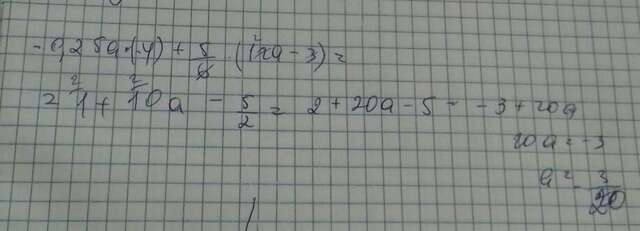 -0,25a·(-4) + 5/6 · (12a - 3) =
= 1 + 10a - 5/2 = 2 + 20a - 5 = -3 + 20a
20a = -3
a = -3/20